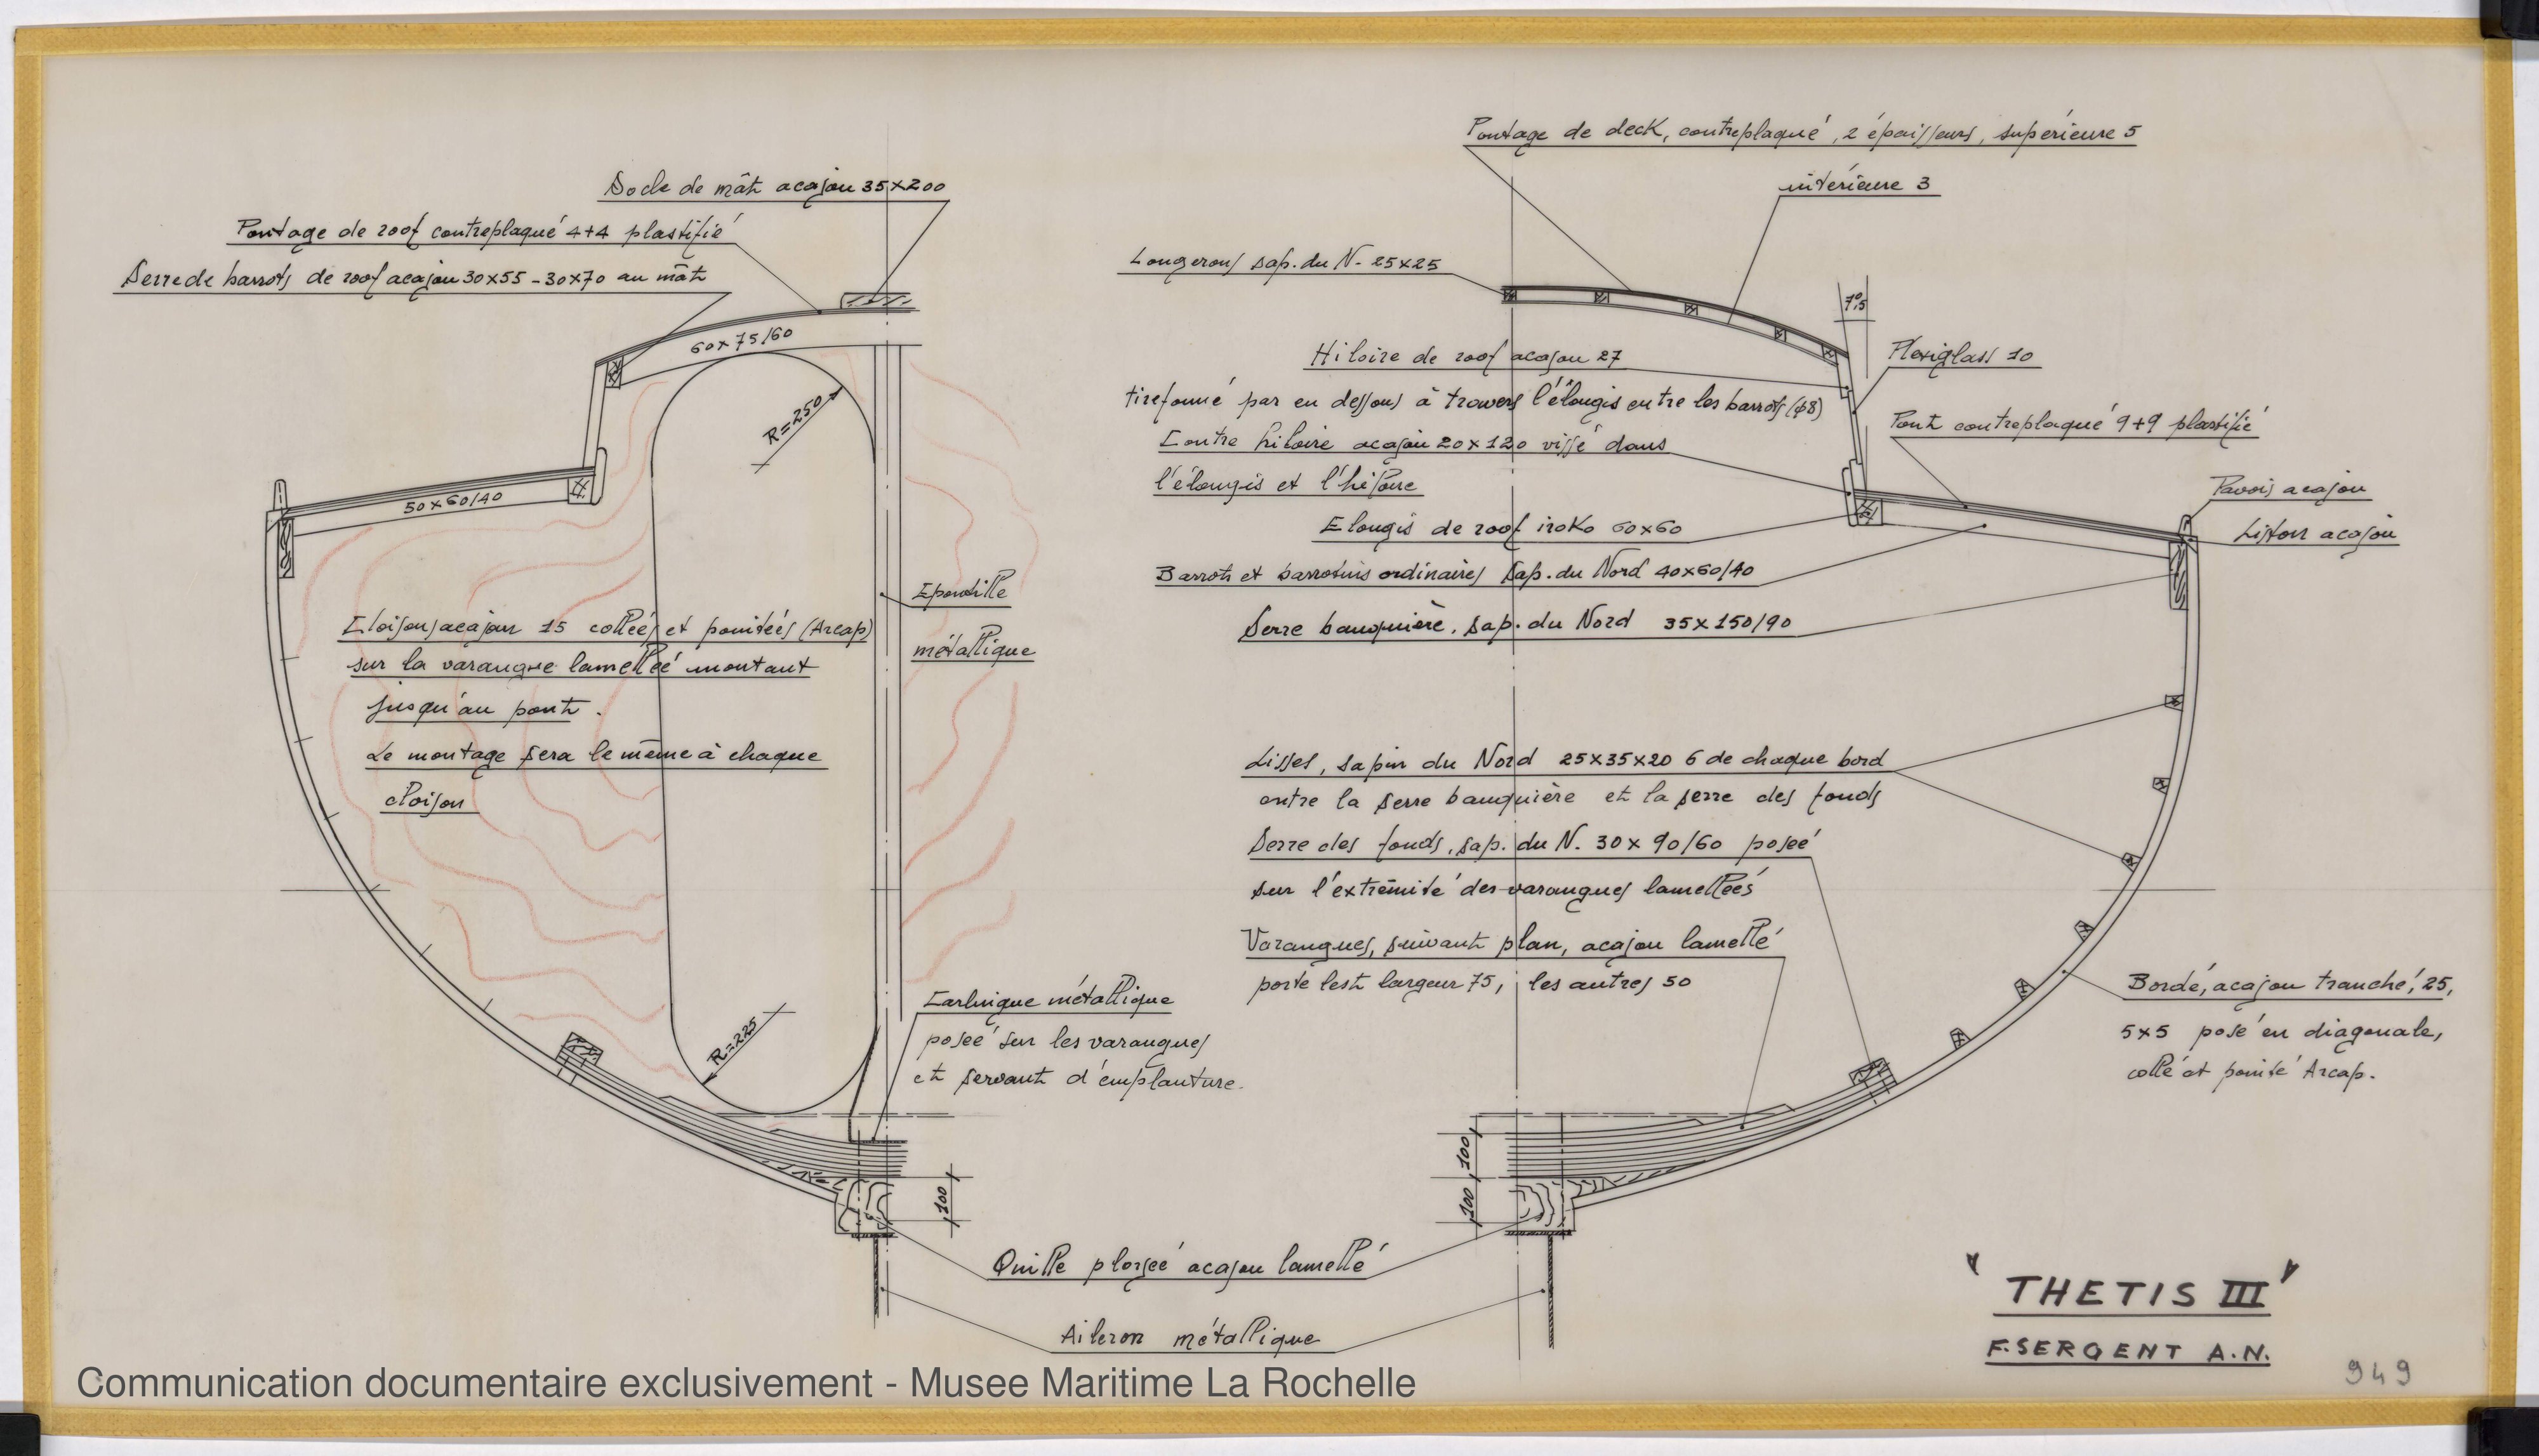 Socle de mât acajou 35x200
Pontage de roof contreplaqué 4+4 plastifié
Serre de barrots de roof acajou 30x55 - 30x70 au mât
60x75/60
R=250
50x60/40
Epontille
métallique
Cloisons acajou 15 collées et pointées (Arcap)
sur la varangue lamellée montant
jusqu'au pont.
Le montage sera le même à chaque
cloison
R=225
Carlingue métallique
posée sur les varangues
et servant d'emplanture.
100
Quille ploisée acajou lamellé
Aileron métallique
Pontage de deck, contreplaqué, 2 épaisseurs, supérieure 5
intérieure 3
Longerons sap. du N. 25x25
7°5
Hiloire de roof acajou 27
tirefonné par en dessous à travers l'élongis entre les barrots (φ8)
Plexiglass 10
Contre hiloire acajou 20x120 vissé dans
l'élongis et l'hiloire
Pont contreplaqué 9+9 plastifié
Pavois acajou
Liston acajou
Elongis de roof iroko 60x60
Barrots et barrotins ordinaires sap. du Nord 40x60/40
Serre bauquière, sap. du Nord 35x150/90
Lisses, sapin du Nord 25x35x20 6 de chaque bord
entre la serre bauquière et la serre des fonds
Serre des fonds, sap. du N. 30x90/60 posée
sur l'extrémité des varangues lamellées
Varangues, suivant plan, acajou lamellé
porte lest largeur 75, les autres 50
Bordé, acajou tranché, 25,
5x5 posé en diagonale,
collé et pointé Arcap.
100
100
"THETIS III"
F. SERGENT A.N.
949
Communication documentaire exclusivement - Musee Maritime La Rochelle